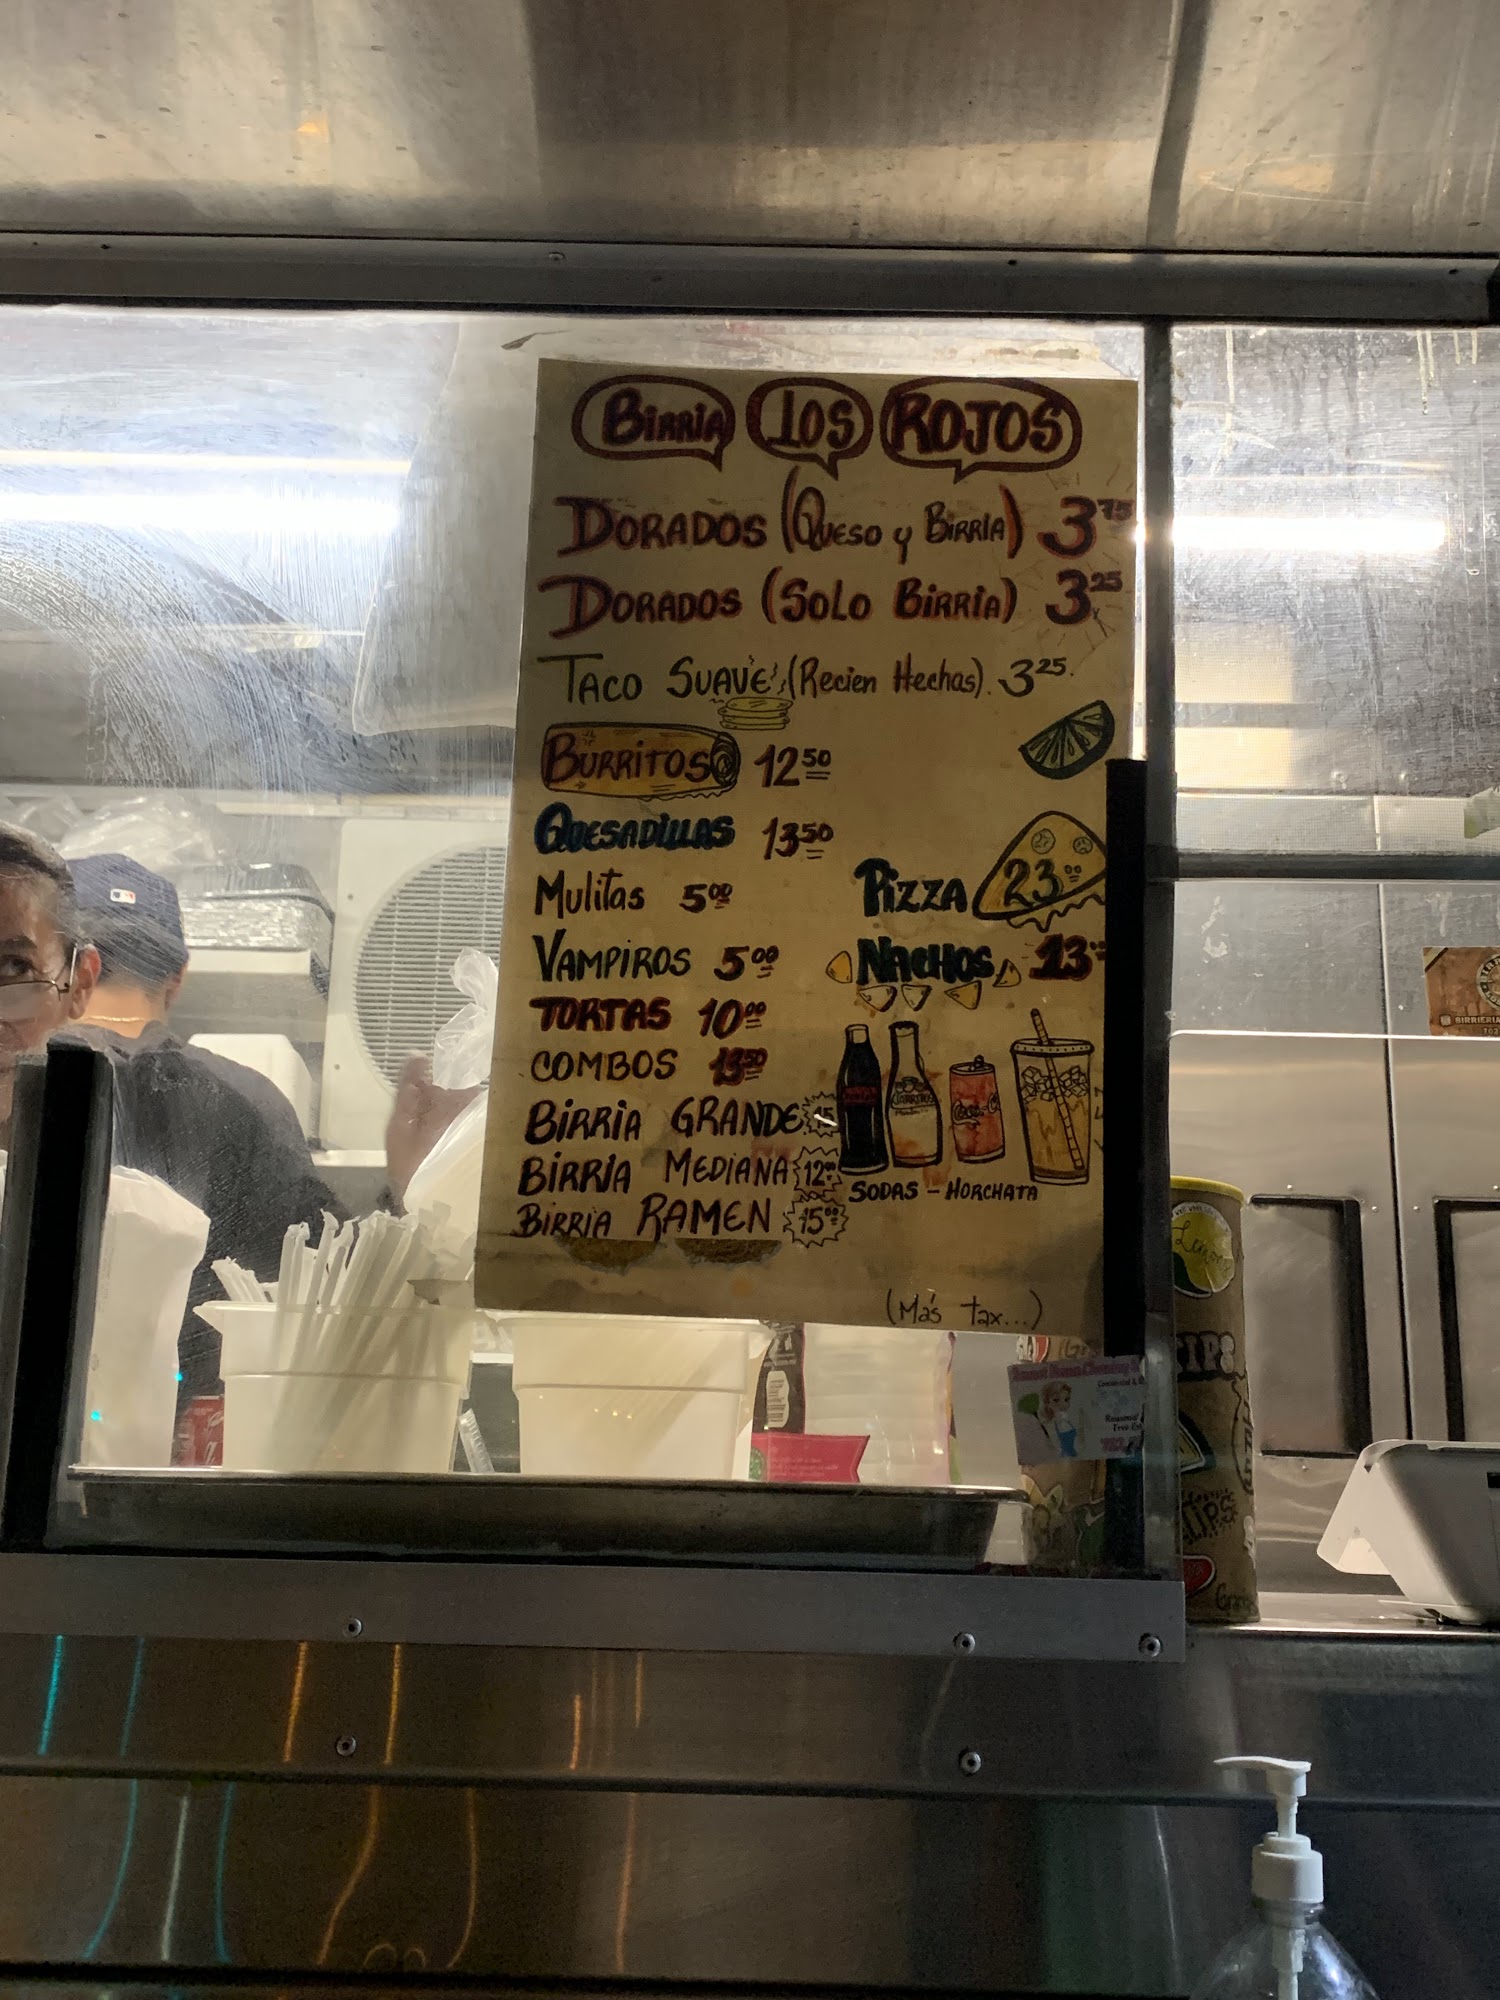 Birria Los Rojos
Dorados (Queso y Birria) 3.75
Dorados (Solo Birria) 3.25
Taco Suave (Recien Hechas). 3.25.
Burritos 12.50
Quesadillas 13.50
Mulitas 5.00
Pizza 23.00
Vampiros 5.00
Nachos 13
Tortas 10.00
Combos 13.50
Birria Grande 15
Birria Mediana 12.00
Birria Ramen 15.00
Jarritos
Coca-C
Sodas - Horchata
(Más tax...)
TIPS
TIPS
BIRRIERIA
702